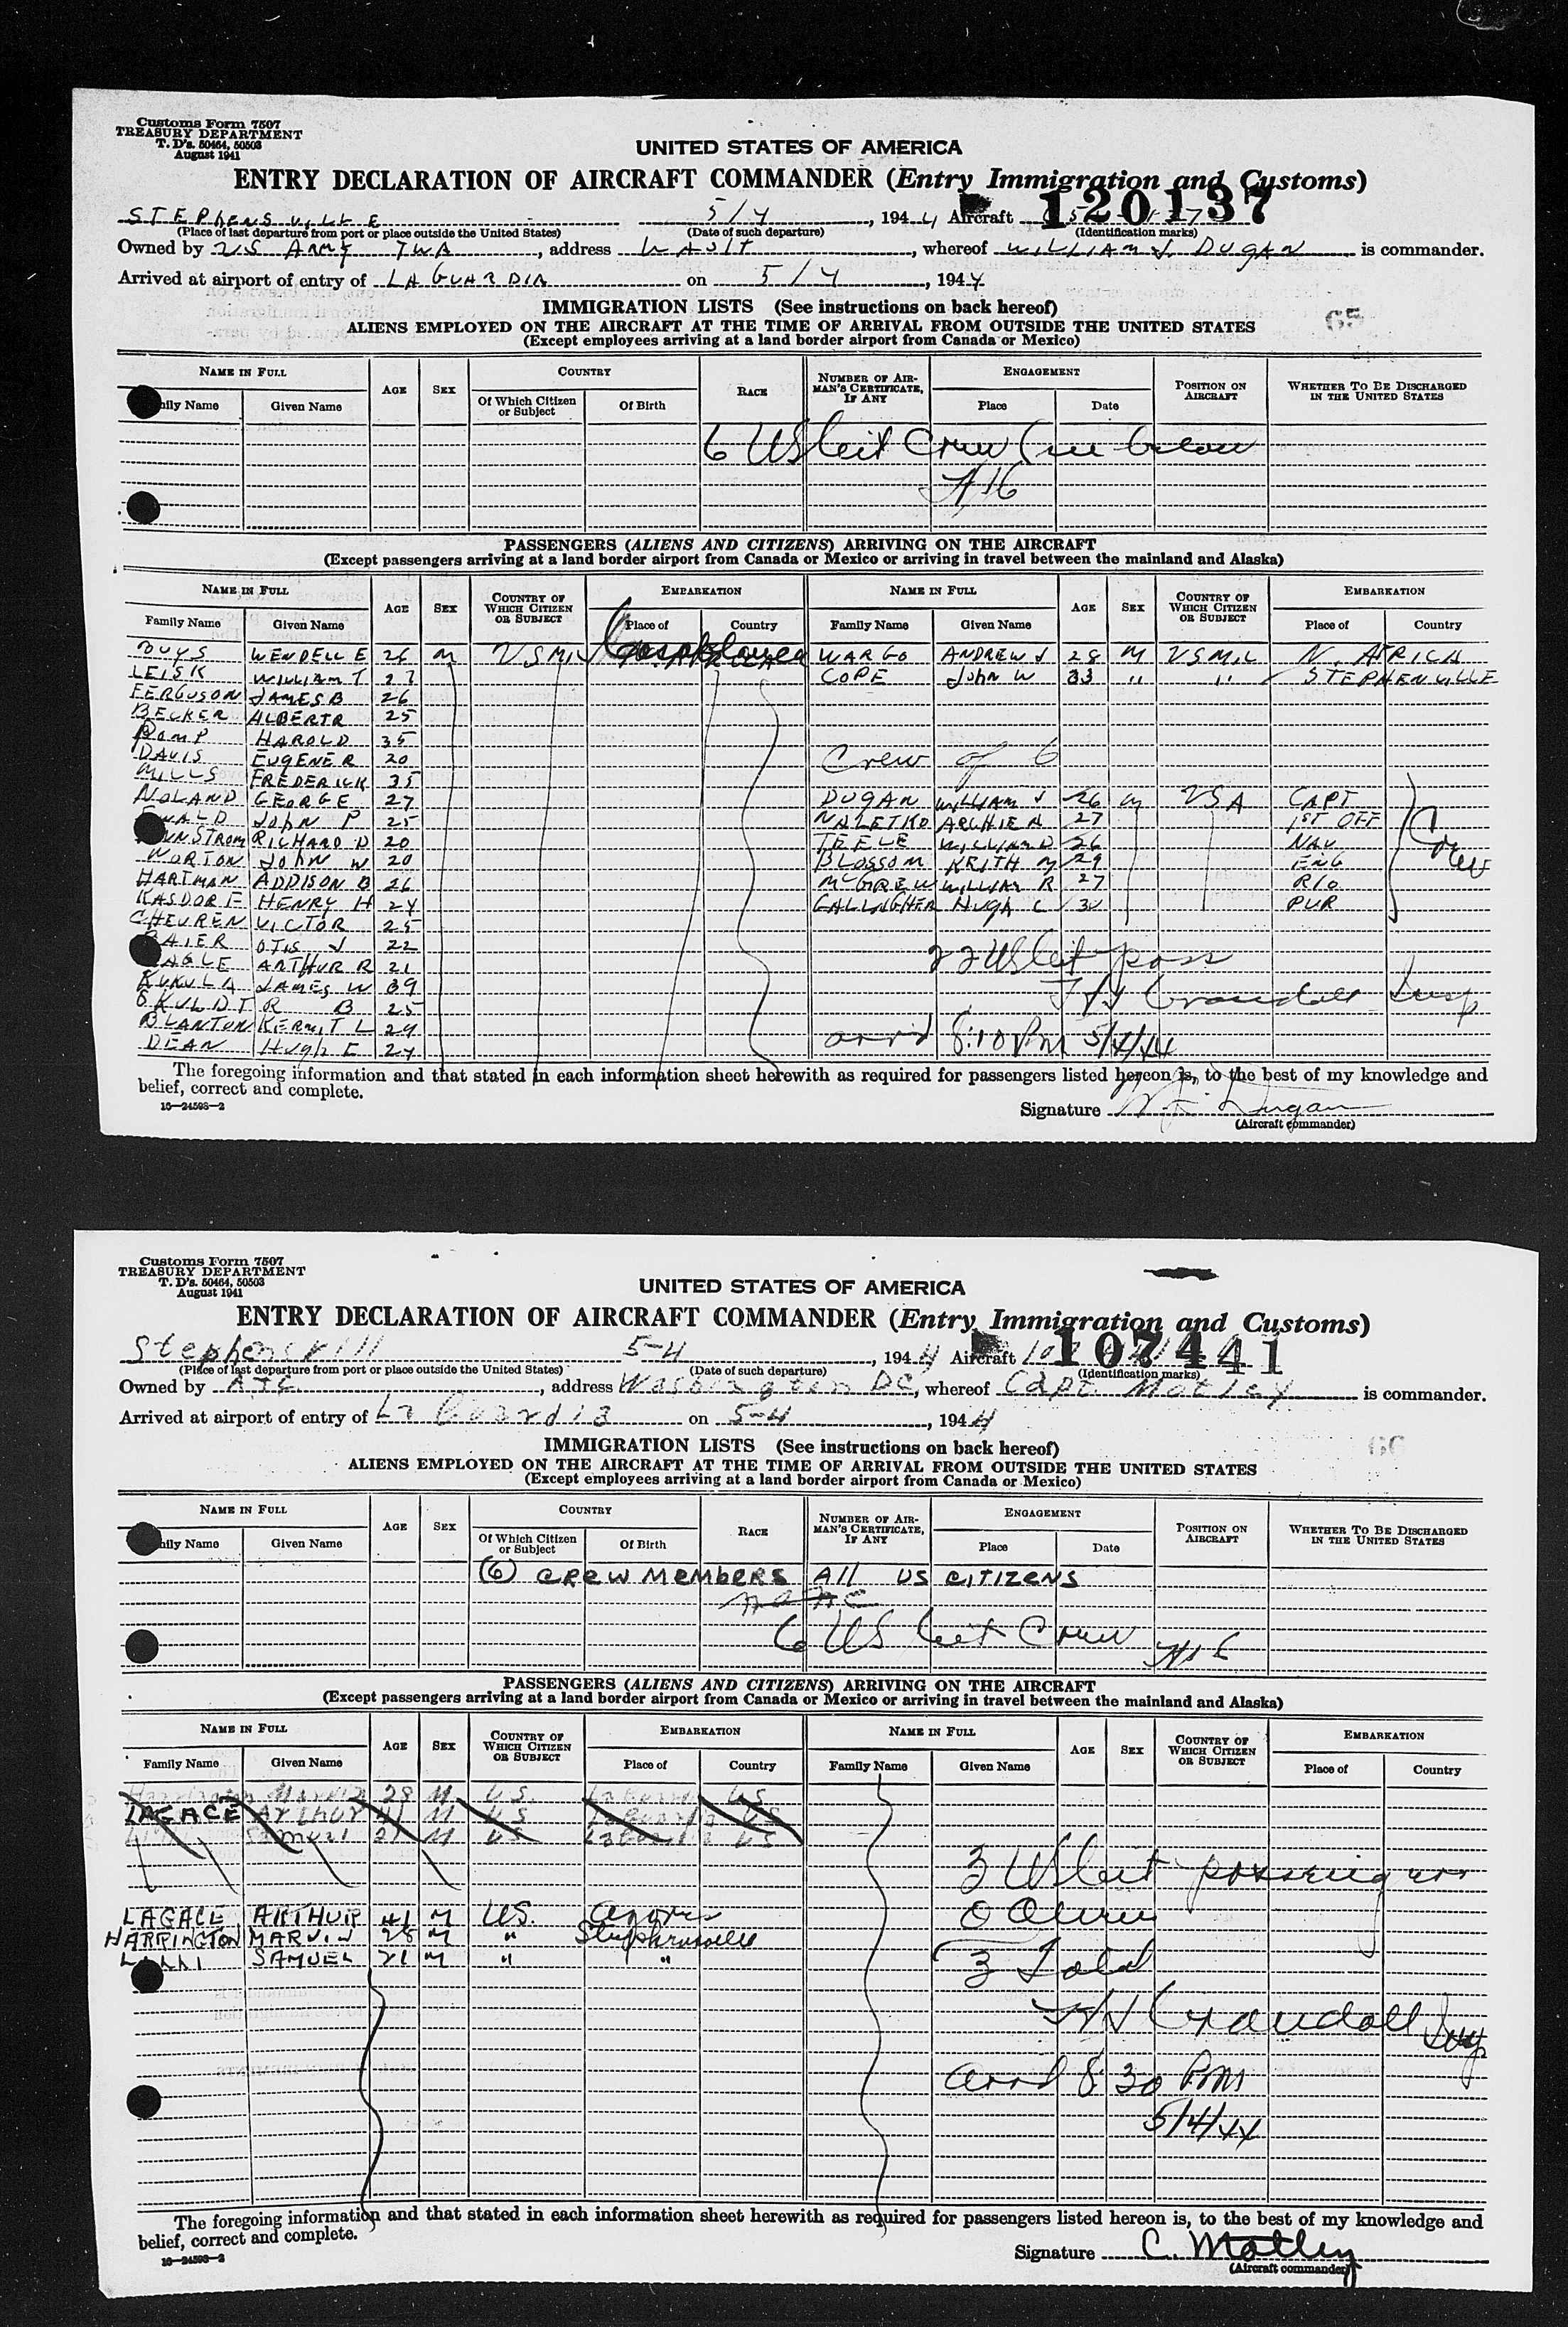 Customs Form 7507
TREASURY DEPARTMENT
T. D's. 50464, 50503
August 1941
UNITED STATES OF AMERICA
ENTRY DECLARATION OF AIRCRAFT COMMANDER (Entry Immigration and Customs)
STEPHENSVILLE 5/4, 1944 Aircraft 120137
(Place of last departure from port or place outside the United States) (Date of such departure) (Identification marks)
Owned by US ARMY TWA, address WASH, whereof WILLIAM J. DUGAN is commander.
Arrived at airport of entry of LA GUARDIA on 5/4, 1944
65
IMMIGRATION LISTS (See instructions on back hereof)
ALIENS EMPLOYED ON THE AIRCRAFT AT THE TIME OF ARRIVAL FROM OUTSIDE THE UNITED STATES
(Except employees arriving at a land border airport from Canada or Mexico)
NAME IN FULL AGE SEX COUNTRY RACE NUMBER OF AIRMAN'S CERTIFICATE, IF ANY ENGAGEMENT POSITION ON AIRCRAFT WHETHER TO BE DISCHARGED IN THE UNITED STATES
Family Name Given Name Of Which Citizen or Subject Of Birth Place Date
6 US Cit Crew (see below
PASSENGERS (ALIENS AND CITIZENS) ARRIVING ON THE AIRCRAFT
(Except passengers arriving at a land border airport from Canada or Mexico or arriving in travel between the mainland and Alaska)
NAME IN FULL AGE SEX COUNTRY OF WHICH CITIZEN OR SUBJECT EMBARKATION NAME IN FULL AGE SEX COUNTRY OF WHICH CITIZEN OR SUBJECT EMBARKATION
Family Name Given Name Place of Country Family Name Given Name Place of Country
BUYS WENDELL E 26 M US MIL Casablanca N. AFRICA WARGO ANDREW J 28 M US MIL N. AFRICA
LEISK WILLIAM T 27 COPE JOHN W 33 " " STEPHENVILLE
FERGUSON JAMES B 26
BECKER ALBERT R 25
POMP HAROLD 35
DAVIS EUGENE R 20 Crew of 6
MILLS FREDERICK 35
NOLAND GEORGE 27 DUGAN WILLIAM J 26 M USA CAPT
JOHN P 25 NALETKO ARCHIE A 27 1ST OFF
RICHARD D 20 TEELE WILLIAM D 26 NAV Crew
NORTON JOHN W 20 BLOSSOM KRITH M 29 ENG
HARTMAN ADDISON B 26 McGREW WILLIAM R 27 R/O
KASDORF HENRY H 24 GALLAGHER HUGH C 30 PUR
CHEUREN VICTOR 25
BAIER OTIS J 22
ARTHUR R 21 22 US Cit pass
KUKULA JAMES W 39
SKULDT R B 25 Crandall Insp
BLANTON KERMIT L 29
DEAN HUGH E 24 arrd 8:10 PM 5/4/44
The foregoing information and that stated in each information sheet herewith as required for passengers listed hereon is, to the best of my knowledge and
belief, correct and complete.
16—24598-2
Signature W J. Dugan
(Aircraft commander)
Customs Form 7507
TREASURY DEPARTMENT
T. D's. 50464, 50503
August 1941
UNITED STATES OF AMERICA
ENTRY DECLARATION OF AIRCRAFT COMMANDER (Entry Immigration and Customs)
Stephensvill 5-4, 1944 Aircraft 107441
(Place of last departure from port or place outside the United States) (Date of such departure) (Identification marks)
Owned by A.T.C., address Washington DC, whereof Capt. Motley is commander.
Arrived at airport of entry of La Guardia on 5-4, 1944
66
IMMIGRATION LISTS (See instructions on back hereof)
ALIENS EMPLOYED ON THE AIRCRAFT AT THE TIME OF ARRIVAL FROM OUTSIDE THE UNITED STATES
(Except employees arriving at a land border airport from Canada or Mexico)
NAME IN FULL AGE SEX COUNTRY RACE NUMBER OF AIRMAN'S CERTIFICATE, IF ANY ENGAGEMENT POSITION ON AIRCRAFT WHETHER TO BE DISCHARGED IN THE UNITED STATES
Family Name Given Name Of Which Citizen or Subject Of Birth Place Date
(6) CREW MEMBERS All US CITIZENS
6 US Cit Crew
PASSENGERS (ALIENS AND CITIZENS) ARRIVING ON THE AIRCRAFT
(Except passengers arriving at a land border airport from Canada or Mexico or arriving in travel between the mainland and Alaska)
NAME IN FULL AGE SEX COUNTRY OF WHICH CITIZEN OR SUBJECT EMBARKATION NAME IN FULL AGE SEX COUNTRY OF WHICH CITIZEN OR SUBJECT EMBARKATION
Family Name Given Name Place of Country Family Name Given Name Place of Country
Harrington Marvin 28 M U.S. La Guardia US
LAGACE Arthur 41 M US La Guardia US
Samuel 21 M US La Guardia US
3 US Cit passengers
LAGACE ARTHUR 41 M US. Azores 0 Aliens
HARRINGTON MARVIN 28 M " Stephensville
SAMUEL 21 M " " 3 Total
Crandall Insp
arrd 8 30 PM
5/4/44
The foregoing information and that stated in each information sheet herewith as required for passengers listed hereon is, to the best of my knowledge and
belief, correct and complete.
16—24598-2
Signature C. Motley
(Aircraft commander)